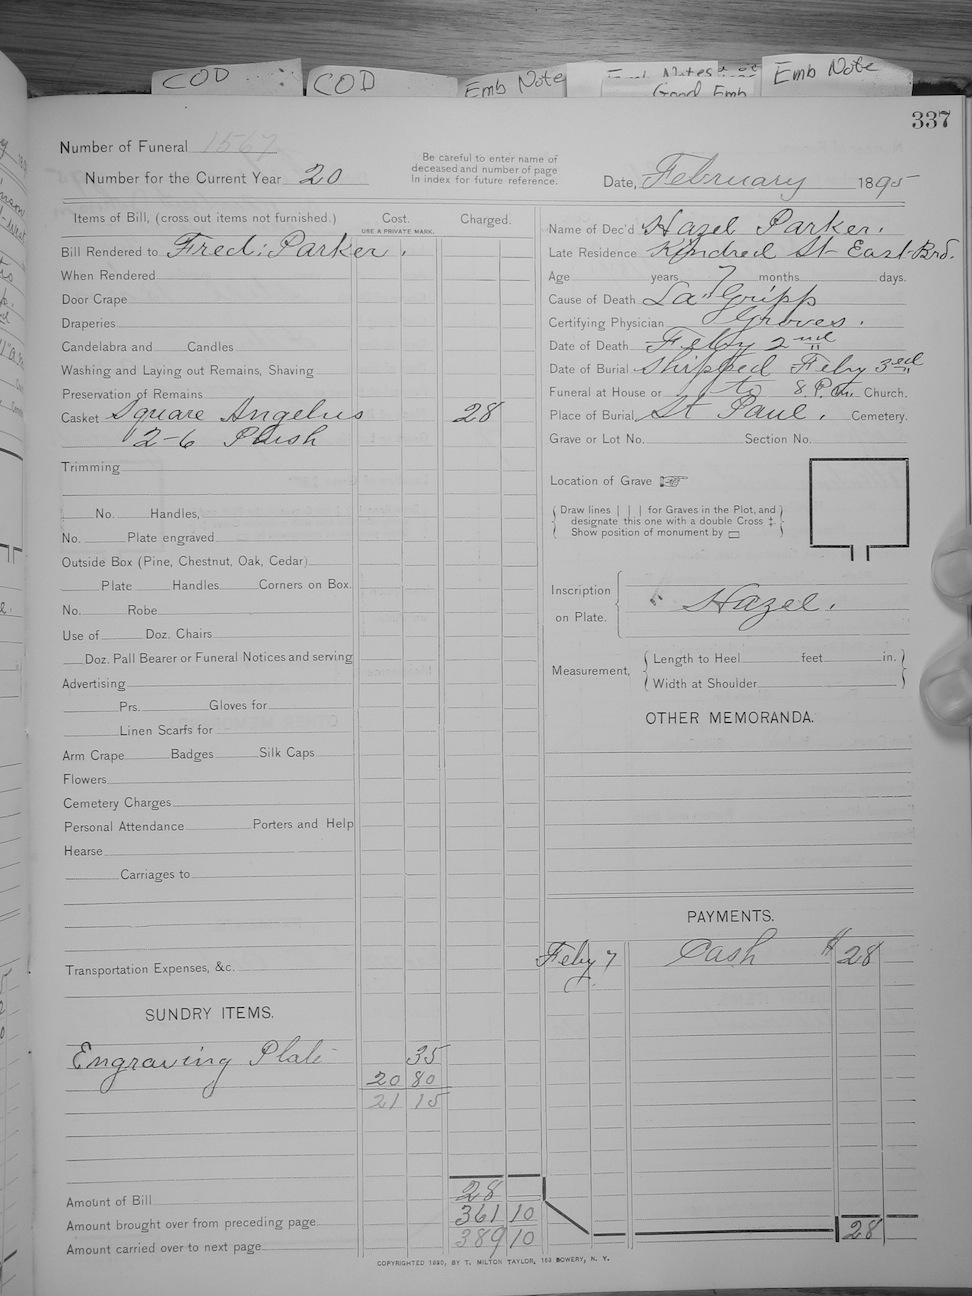 COD
COD
Emb Note
Good Emb
Emb Note
337
Number of Funeral 1567
Number for the Current Year 20
Be careful to enter name of
deceased and number of page
in index for future reference.
Date, February 1895
Items of Bill, (cross out items not furnished.) Cost. Charged.
USE A PRIVATE MARK.
Bill Rendered to Fred: Parker.
When Rendered
Door Crape
Draperies
Candelabra and Candles
Washing and Laying out Remains, Shaving
Preservation of Remains
Casket Square Angelus 28
2-6 Plush
Trimming
No. Handles,
No. Plate engraved
Outside Box (Pine, Chestnut, Oak, Cedar)
Plate Handles Corners on Box.
No. Robe
Use of Doz. Chairs
Doz. Pall Bearer or Funeral Notices and serving
Advertising
Prs. Gloves for
Linen Scarfs for
Arm Crape Badges Silk Caps
Flowers
Cemetery Charges
Personal Attendance Porters and Help
Hearse
Carriages to
Transportation Expenses, &c.
SUNDRY ITEMS.
Engraving Plate 35
20 80
21 15
Amount of Bill 28
Amount brought over from preceding page 361 10
Amount carried over to next page 389 10
Name of Dec'd Hazel Parker.
Late Residence Kindred St East Brd.
Age years 7 months days.
Cause of Death La Gripp
Certifying Physician Groves.
Date of Death Feby 2nd
Date of Burial Shipped Feby 3rd
Funeral at House or to 8 P.M. Church.
Place of Burial St Paul. Cemetery.
Grave or Lot No. Section No.
Location of Grave
Draw lines | | | for Graves in the Plot, and
designate this one with a double Cross ‡.
Show position of monument by ▭
Inscription
on Plate.
Hazel.
Measurement,
Length to Heel feet in.
Width at Shoulder
OTHER MEMORANDA.
PAYMENTS.
Feby 7 Cash $ 28
28
COPYRIGHTED 1890, BY T. MILTON TAYLOR, 163 BOWERY, N. Y.